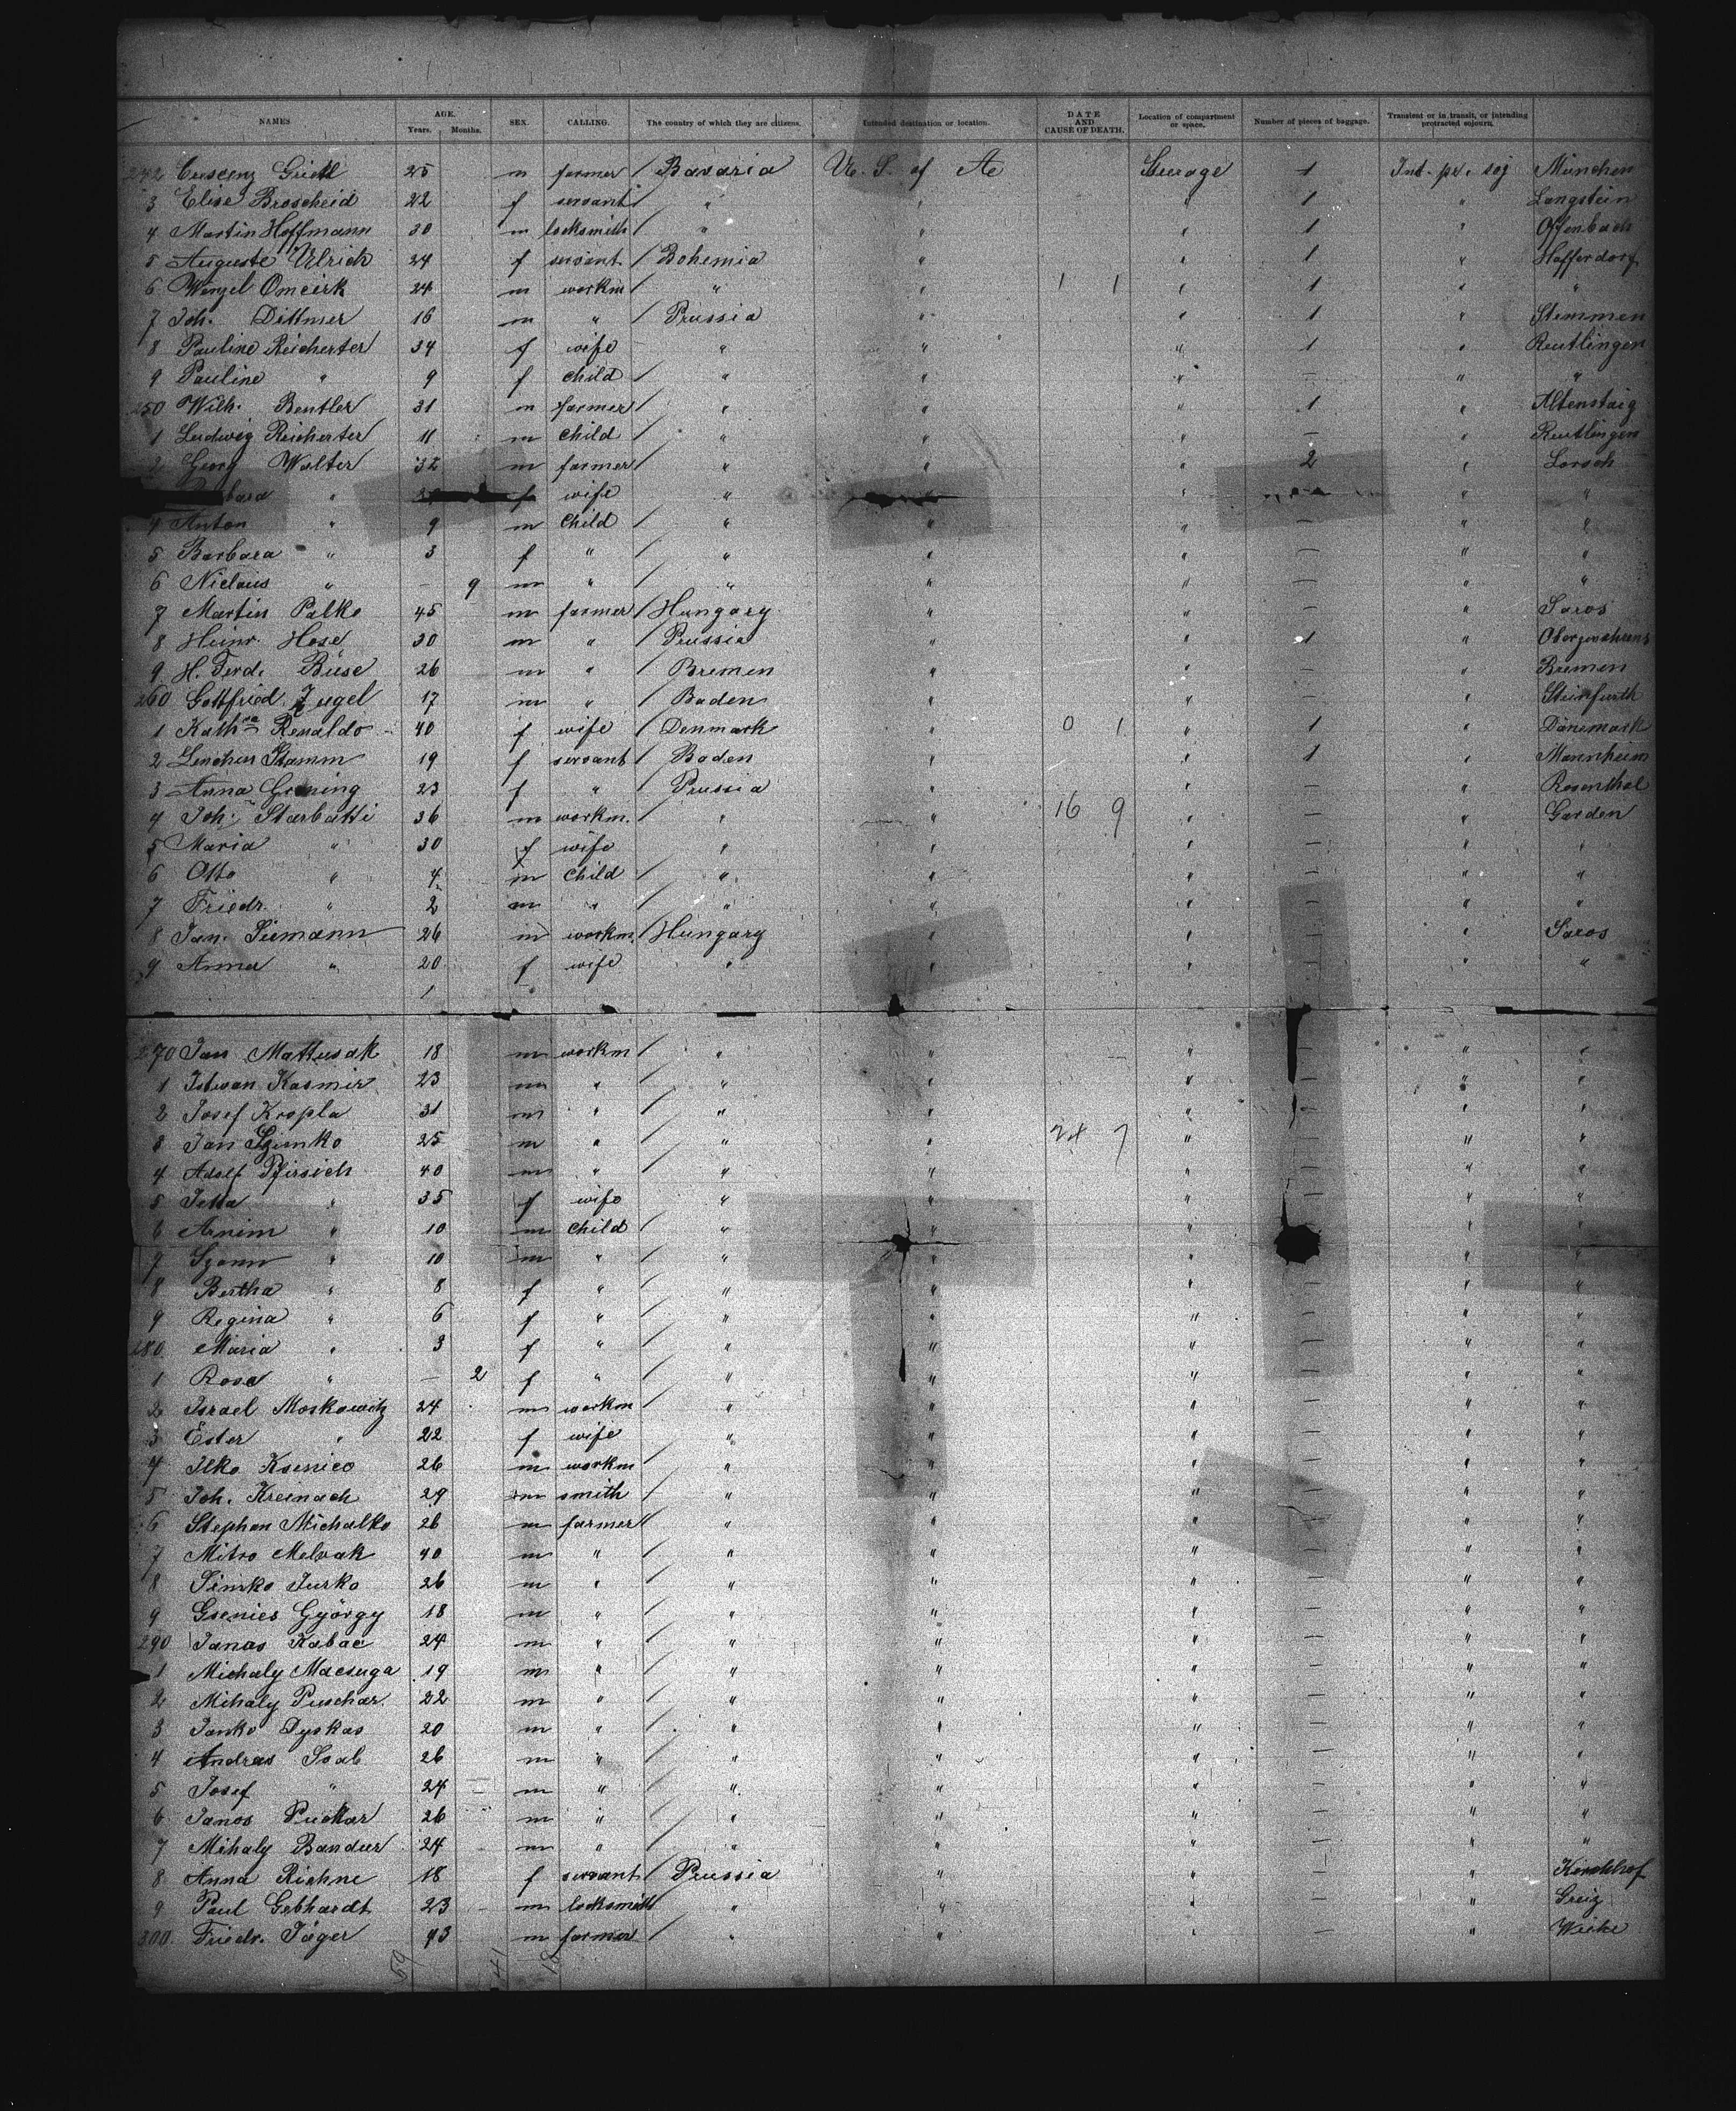 NAMES. AGE. Years. Months. SEX. CALLING. The country of which they are citizens. Intended destination or location. DATE AND CAUSE OF DEATH. Location of compartment or space. Number of pieces of baggage. Transient or in transit, or intending protracted sojourn.
242 Crescenz 25 m farmer / Bavaria U. S. of A Steerage 1 Int. pr. soj München
3 Elise Broscheid 22 f servant " " " 1 " Langstein
4 Martin Hoffmann 30 m locksmith " " " 1 " Offenbach
5 Auguste Ulrich 24 f servant / Bohemia " " 1 "
6 Wenzel 24 m workm " " 1 1 " 1 " "
7 Joh. Dittmer 16 m " / Prussia " " 1 " Stemmen
8 Pauline Reicherter 34 f wife " " " 1 " Reutlingen
9 Pauline " 9 f child / " " " — " "
250 Wilh. Bentler 31 m farmer / " " " 1 " Altenstaig
1 Ludwig Reicherter 11 m child / " " " — " Reutlingen
2 Georg Walter 32 m farmer / " " " 2 " Lorsch
" f wife " " " " "
4 Anton " 9 m child / " " " — " "
5 Barbara " 3 f " / " " " — " "
6 Niclaus " — 9 m " / " " " — " "
7 Martin Palko 45 m farmer / Hungary " " — " Saros
8 Heinr. Hose 30 m " / Prussia " " 1 "
9 H. Ferd. Büse 26 m " / Bremen " " — " Bremen
260 Gottfried Zugel 17 m " / Baden " " — " Steinfurth
1 Kathna Renaldo 40 f wife / Denmark " 0 1 " 1 " Dänemark
2 Lenchen Stamm 19 f servant / Baden " " 1 " Mannheim
3 Anna Groning 23 f " Prussia " " — " Rosenthal
4 Joh. Starbatti 36 m workm. / " " 16 9 " — " Garden
5 Maria " 30 f wife " " " — " "
6 Otto " 4 m child / " " " — " "
7 Friedr. " 2 m " / " " " — " "
8 Jan. Siemann 26 m workm. / Hungary " " — " Saros
9 Anna " 20 f wife " " " — " "
1
270 Jan Mattusak 18 m workm / " " " — " "
1 Istwan Kasmir 23 m " / " " " — " "
2 Josef Kropla 31 m " / " " " — " "
3 Jan Szimko 25 m " / " " 24 7 " — " "
4 Adolf Pfirsich 40 m " / " " " — " "
5 Jetta " 35 f wife " " " — " "
6 Armin " 10 m child / " " " " "
7 " 10 m " / " " " — " "
8 Bertha " 8 f " / " " " — " "
9 Regina " 6 f " / " " " — " "
280 Maria " 3 f " / " " " — " "
1 Rosa " — 2 f " / " " " — " "
2 Israel Moskowitz 24 m workm / " " " — " "
3 Ester " 22 f wife " " " — " "
4 Ilko Ksenics 26 m workm / " " " — " "
5 Joh. Kreinach 29 m smith / " " " — " "
6 Stephan Michalko 26 m farmer / " " " — " "
7 Mitro Melvak 40 m " / " " " — " "
8 Simko Jurko 26 m " / " " " — " "
9 Gsenies György 18 m " / " " " — " "
290 Janos Kabac 24 m " / " " " — " "
1 Michaly Macsuga 19 m " / " " " — " "
2 Mihaly Puschar 22 m " / " " " — " "
3 Janko Dyskas 20 m " / " " " — " "
4 Andras Saab 26 m " / " " " — " "
5 Josef " 24 m " / " " " — " "
6 Janos 26 m " / " " " — " "
7 Mihaly Bandur 24 m " / " " " — " "
8 Anna Riehne 18 f servant / Prussia " " — " Kirchhof
9 Paul Gebhardt 23 m locksmith " " " — " Greiz
300 Friedr. Jäger 43 m farmer / " " " — "
59 41 18